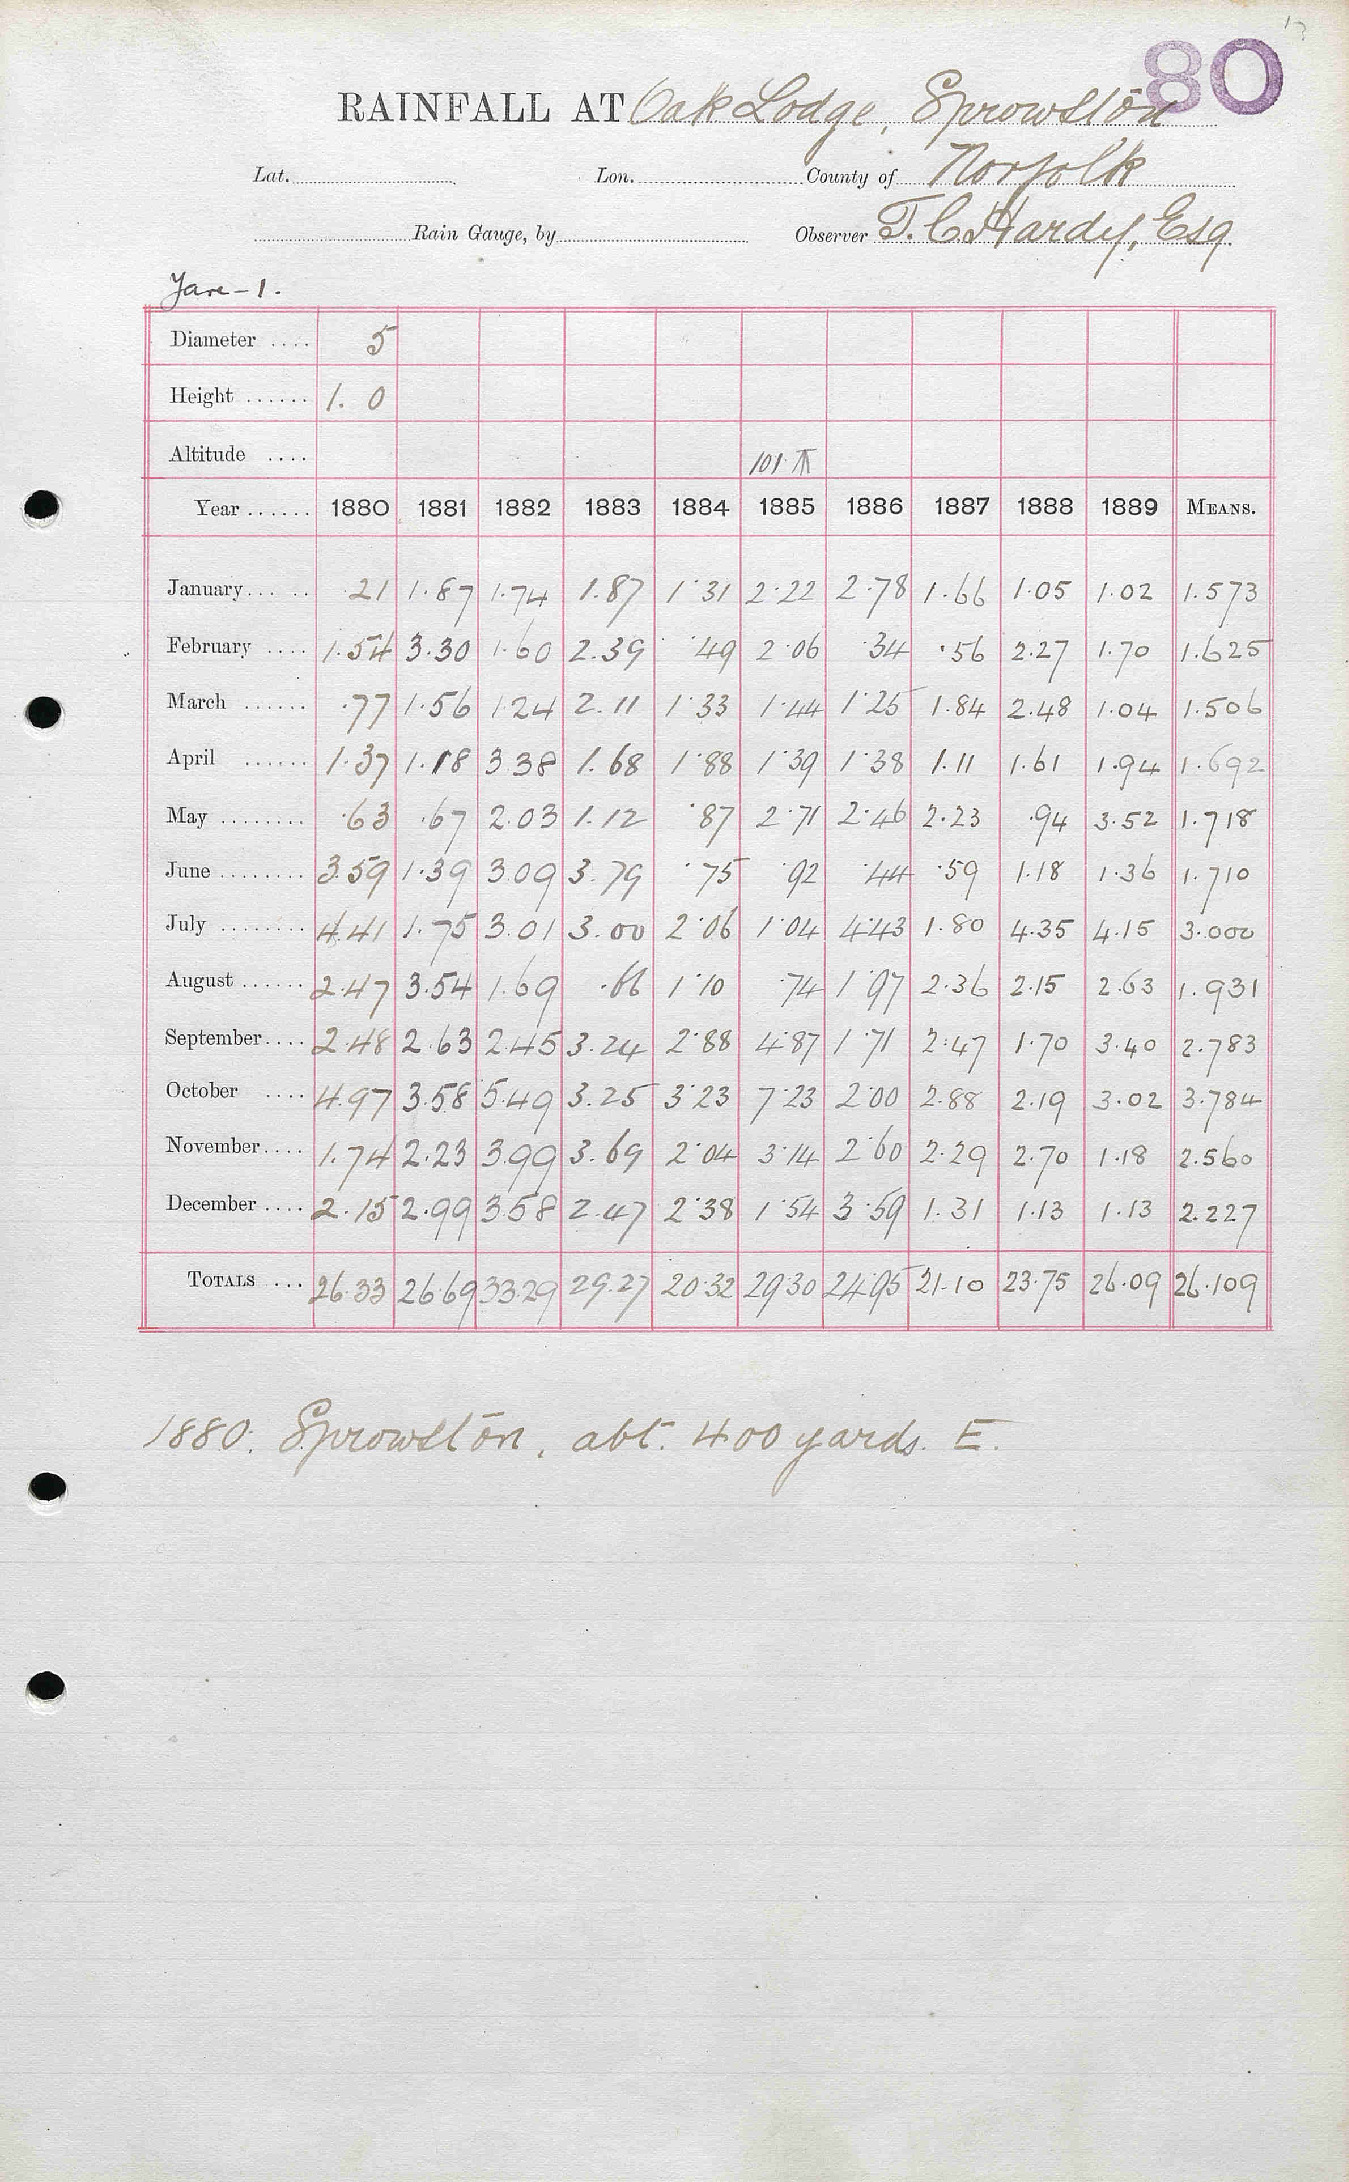 80
RAINFALL AT Oak Lodge, Sprowston
Lat. Lon. County of Norfolk
Rain Gauge, by Observer T. C. Hardy, Esq.
Yare - 1.
Diameter .... 5
Height ...... 1. 0
Altitude .... 101
Year ...... 1880 1881 1882 1883 1884 1885 1886 1887 1888 1889 MEANS.
January ... .. .21 1.87 1.74 1.87 1.31 2.22 2.78 1.66 1.05 1.02 1.573
February .... 1.54 3.30 1.60 2.39 .49 2.06 .34 .56 2.27 1.70 1.625
March ...... .77 1.56 1.24 2.11 1.33 1.44 1.25 1.84 2.48 1.04 1.506
April ...... 1.37 1.18 3.38 1.68 1.88 1.39 1.38 1.11 1.61 1.94 1.692
May ........ .63 .67 2.03 1.12 .87 2.71 2.46 2.23 .94 3.52 1.718
June ........ 3.59 1.39 3.09 3.79 .75 .92 .44 .59 1.18 1.36 1.710
July ........ 4.41 1.75 3.01 3.00 2.06 1.04 4.43 1.80 4.35 4.15 3.000
August ...... 2.47 3.54 1.69 .66 1.10 .74 1.97 2.36 2.15 2.63 1.931
September .... 2.48 2.63 2.45 3.24 2.88 4.87 1.71 2.47 1.70 3.40 2.783
October .... 4.97 3.58 5.49 3.25 3.23 7.23 2.00 2.88 2.19 3.02 3.784
November .... 1.74 2.23 3.99 3.69 2.04 3.14 2.60 2.29 2.70 1.18 2.560
December .... 2.15 2.99 3.58 2.47 2.38 1.54 3.59 1.31 1.13 1.13 2.227
TOTALS ... 26.33 26.69 33.29 29.27 20.32 29.30 24.95 21.10 23.75 26.09 26.109
1880. Sprowston, abt. 400 yards. E.